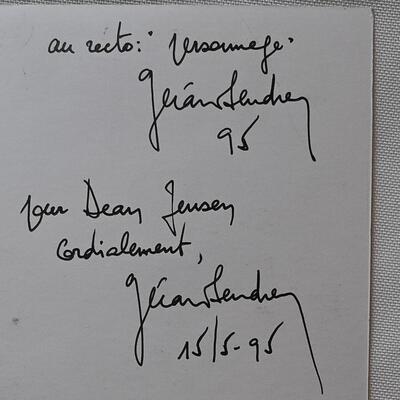 au recto: "personnage"
Gérard Sendrey
95
pour Dean Jensen
Cordialement,
Gérard Sendrey
15/5-95